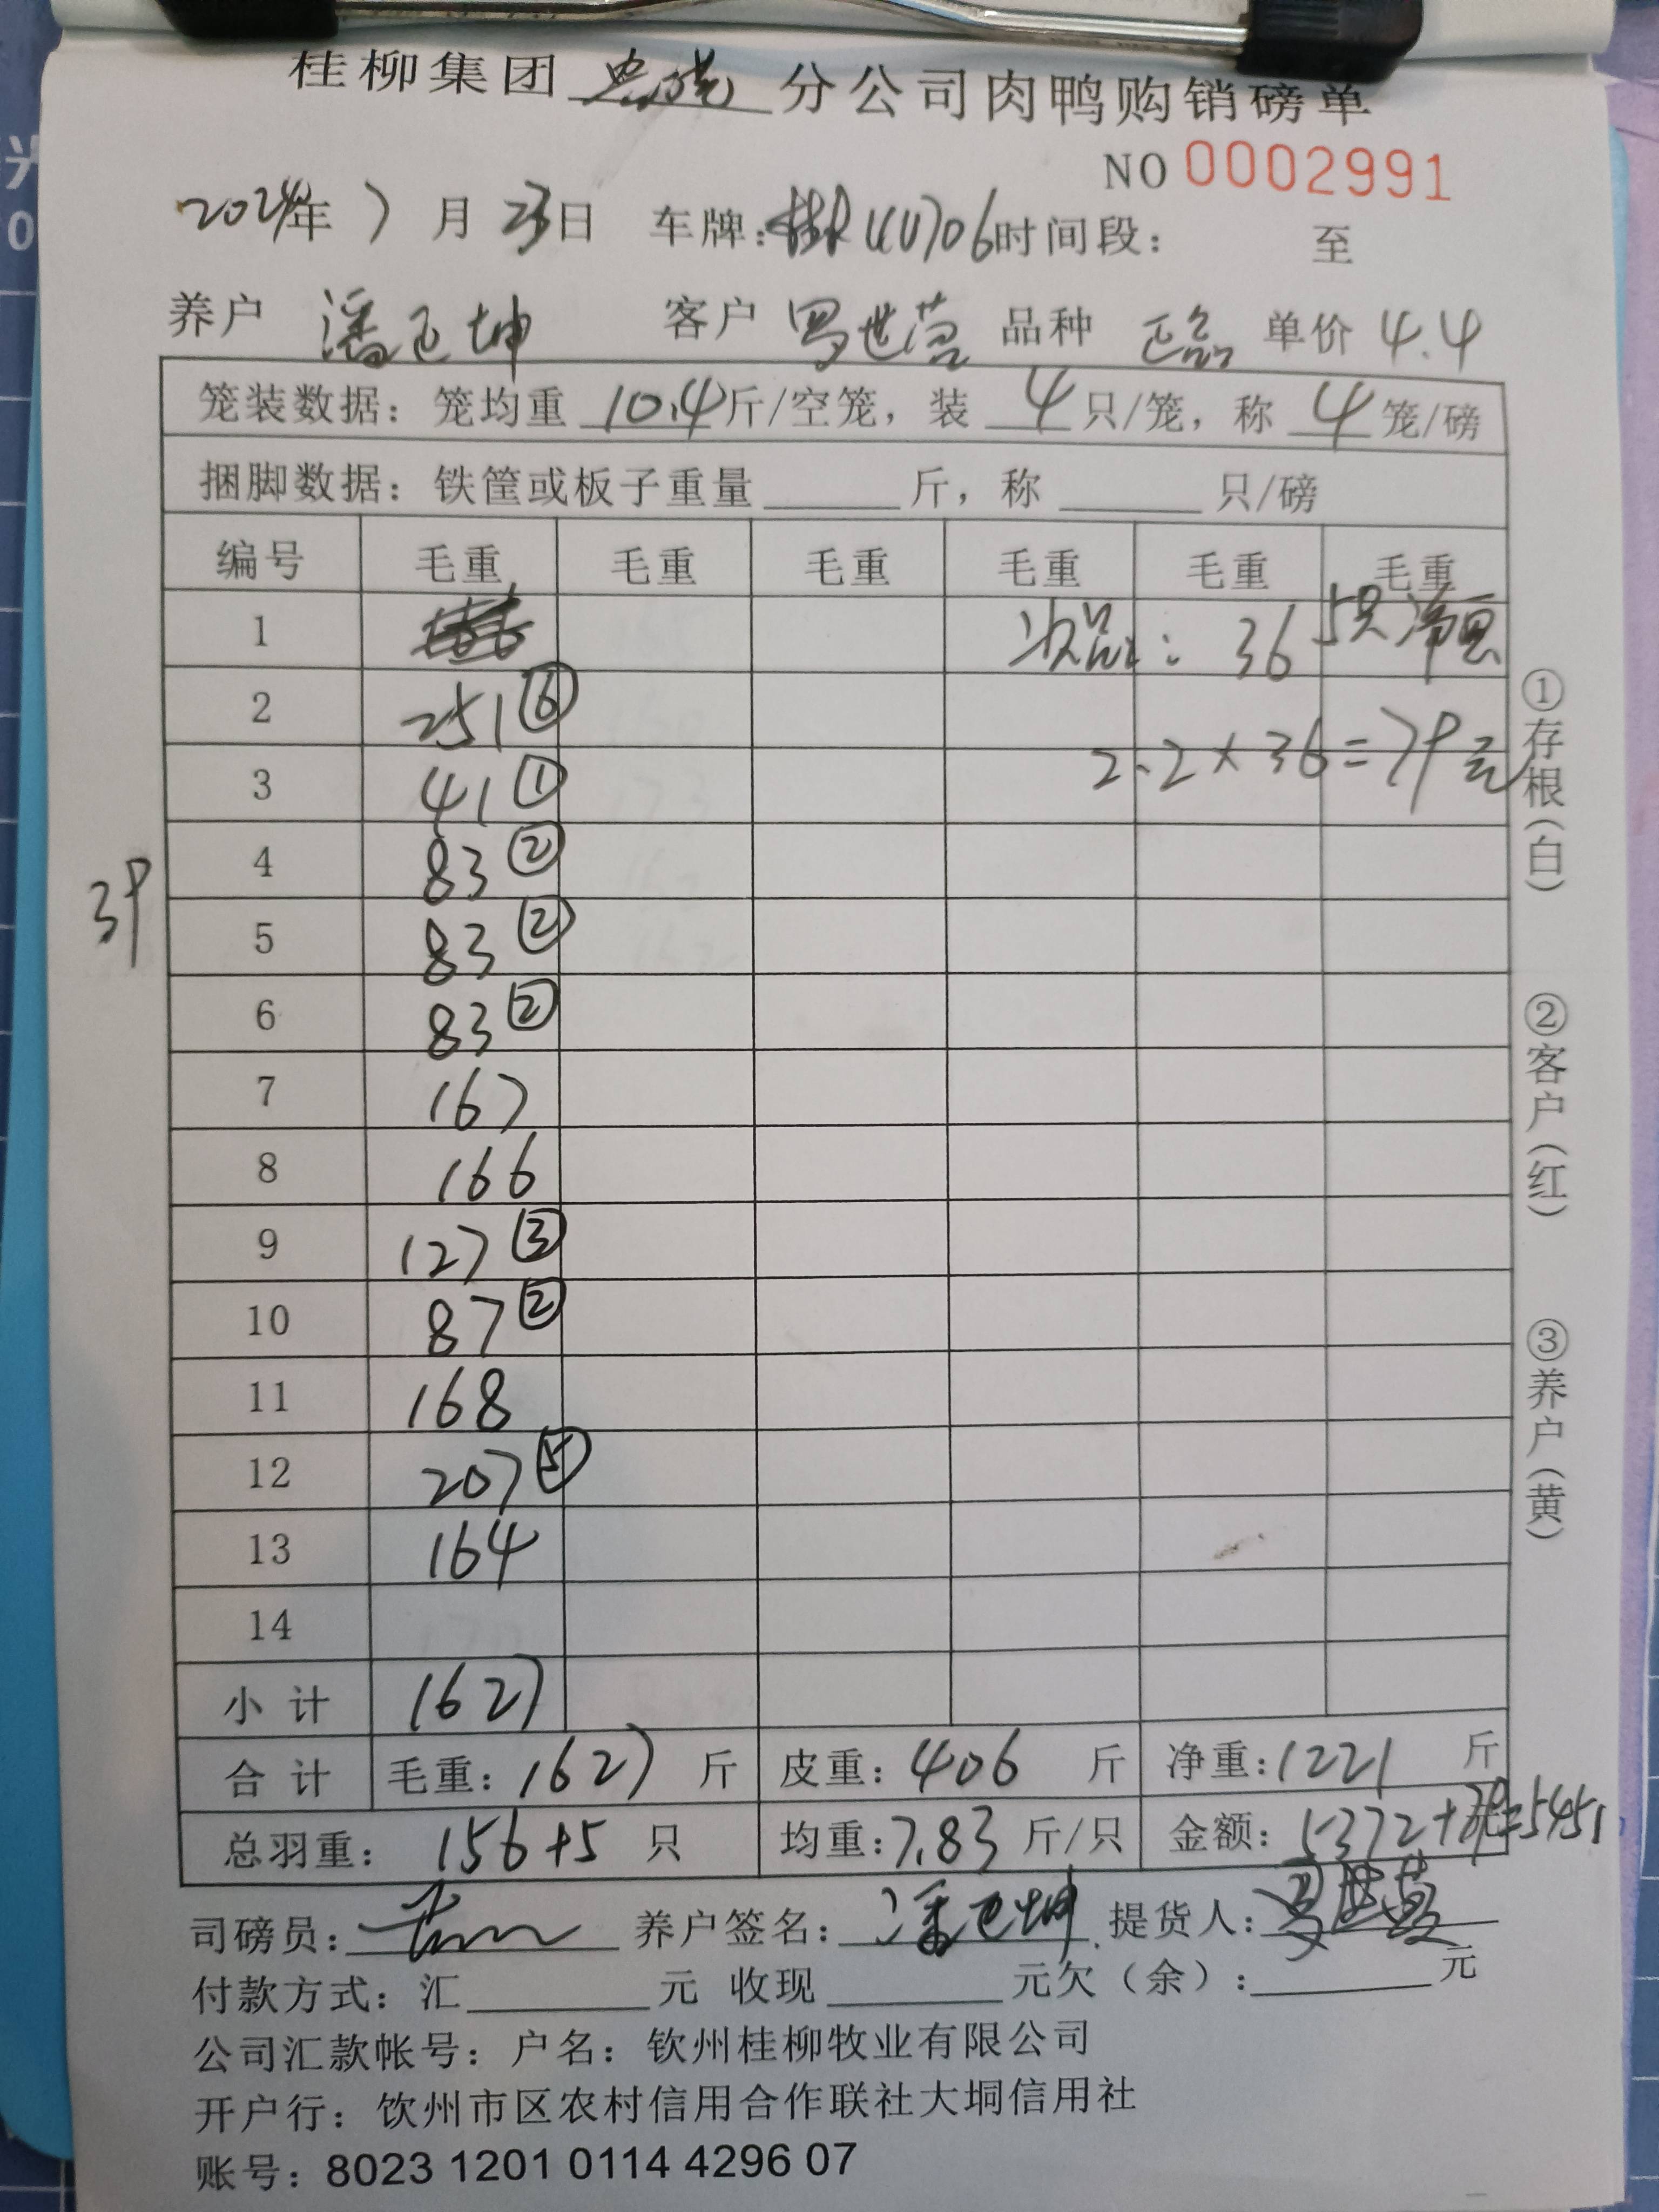 桂柳集团 分公司肉鸭购销磅单
NO 0002991
2024年 7 月 23日 车牌: 时间段: 至
养户 潘 坤 客户 罗世 品种 单价 4.4
笼装数据: 笼均重 10.4斤/空笼, 装 4 只/笼, 称 4 笼/磅
捆脚数据: 铁筐或板子重量 斤, 称 只/磅
编号 毛重 毛重 毛重 毛重 毛重 毛重
1 次品: 36 5只净重
2 251 ⑥
2.2×36=79元
3 41 ①
4 83 ②
39
5 83 ②
6 83 ②
7 167
8 166
9 127 ③
10 87 ②
11 168
12 207 ⑤
13 164
14
小计 1627
合计 毛重: 1627 斤 皮重: 406 斤 净重: 1221 斤
总羽重: 156+5 只 均重: 7.83 斤/只 金额: 5372+79=5451
司磅员: 养户签名: 潘 坤 提货人:
付款方式: 汇 元 收现 元欠(余): 元
公司汇款帐号: 户名: 钦州桂柳牧业有限公司
开户行: 钦州市区农村信用合作联社大垌信用社
账号: 8023 1201 0114 4296 07
①存根(白)
②客户(红)
③养户(黄)